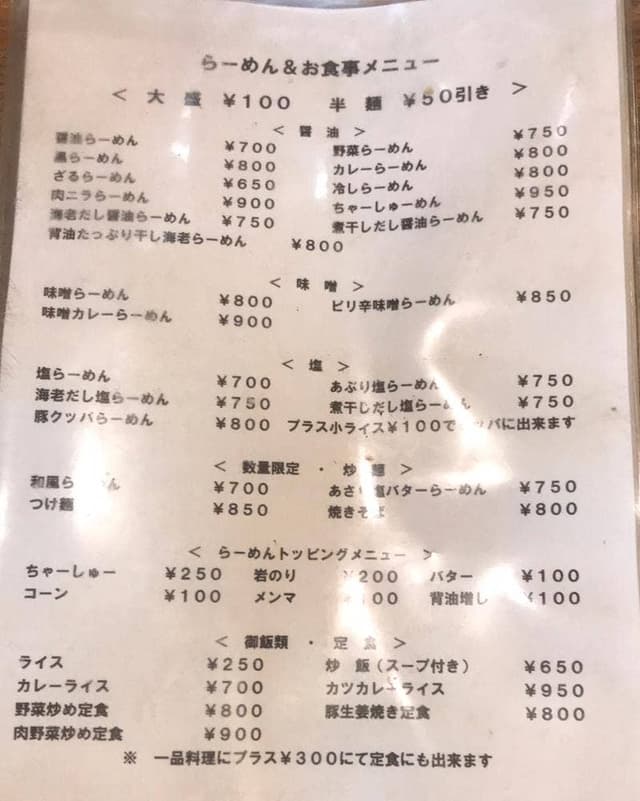 らーめん＆お食事メニュー
＜ 大 盛 ￥100 半 麺 ￥50引き ＞
＜ 醤 油 ＞
醤油らーめん ￥700 野菜らーめん ￥750
黒らーめん ￥800 カレーらーめん ￥800
ざるらーめん ￥650 冷しらーめん ￥800
肉ニラらーめん ￥900 ちゃーしゅーめん ￥950
海老だし醤油らーめん ￥750 煮干しだし醤油らーめん ￥750
背油たっぷり干し海老らーめん ￥800
＜ 味 噌 ＞
味噌らーめん ￥800 ピリ辛味噌らーめん ￥850
味噌カレーらーめん ￥900
＜ 塩 ＞
塩らーめん ￥700 あぶり塩らーめん ￥750
海老だし塩らーめん ￥750 煮干しだし塩らーめん ￥750
豚クッパらーめん ￥800 プラス小ライス￥100でクッパに出来ます
＜ 数量限定 ・ 炒 麺 ＞
和風らーめん ￥700 あさり塩バターらーめん ￥750
つけ麺 ￥850 焼きそば ￥800
＜ らーめんトッピングメニュー ＞
ちゃーしゅー ￥250 岩のり ￥200 バター ￥100
コーン ￥100 メンマ ￥100 背油増し ￥100
＜ 御飯類 ・ 定 食 ＞
ライス ￥250 炒 飯（スープ付き） ￥650
カレーライス ￥700 カツカレーライス ￥950
野菜炒め定食 ￥800 豚生姜焼き定食 ￥800
肉野菜炒め定食 ￥900
※ 一品料理にプラス￥300にて定食にも出来ます